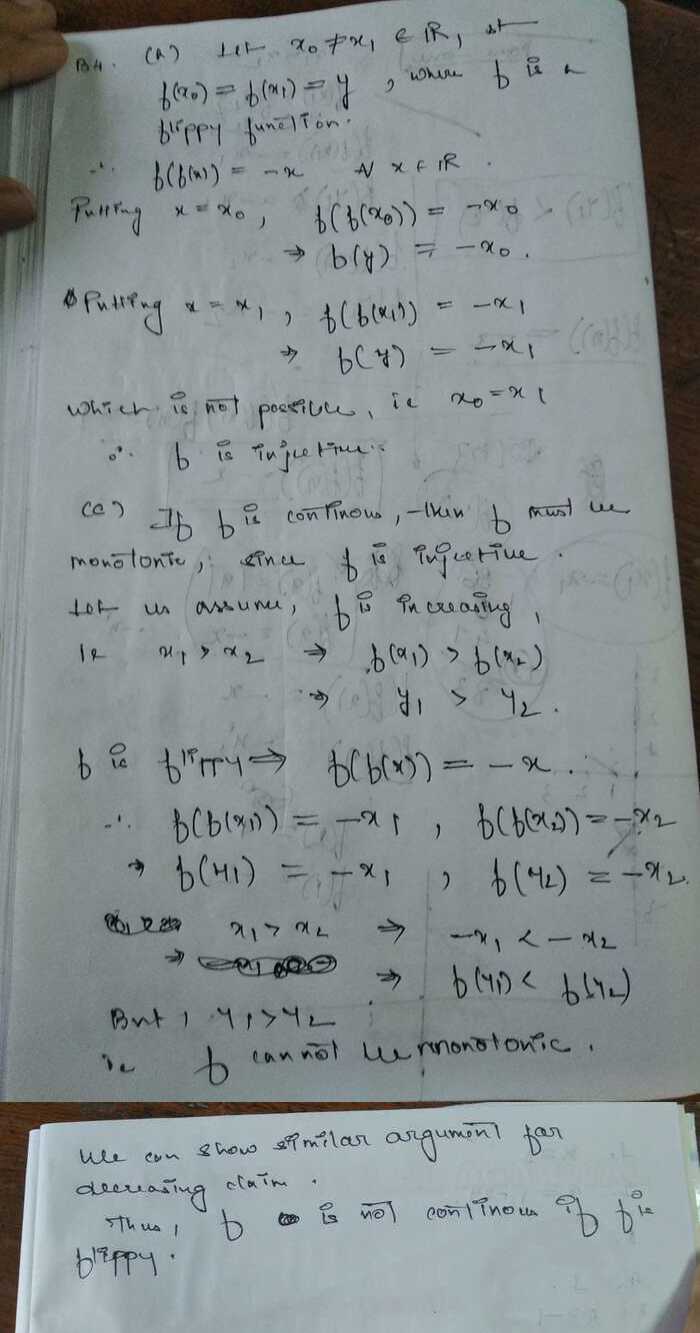 B4. (a) Let x₀ ≠ x₁ ∈ ℝ, st
f(x₀) = f(x₁) = y, where f is a
flippy function.
∴ f(f(x)) = -x ∀ x ∈ ℝ.
Putting x = x₀, f(f(x₀)) = -x₀
⇒ f(y) = -x₀.
Putting x = x₁, f(f(x₁)) = -x₁
⇒ f(y) = -x₁
which is not possible, ie x₀ = x₁
∴ f is injective.
(c) If f is continous, then f must be
monotonic, since f is injective.
Let us assume, f is increasing,
ie x₁ > x₂ ⇒ f(x₁) > f(x₂)
⇒ y₁ > y₂.
f is flippy ⇒ f(f(x)) = -x.
∴ f(f(x₁)) = -x₁, f(f(x₂)) = -x₂
⇒ f(y₁) = -x₁, f(y₂) = -x₂.
x₁ > x₂ ⇒ -x₁ < -x₂
⇒ ⇒ f(y₁) < f(y₂)
But, y₁ > y₂
ie f cannot be monotonic.
We can show similar argument for
decreasing claim.
Thus, f is not continous if f is
flippy.